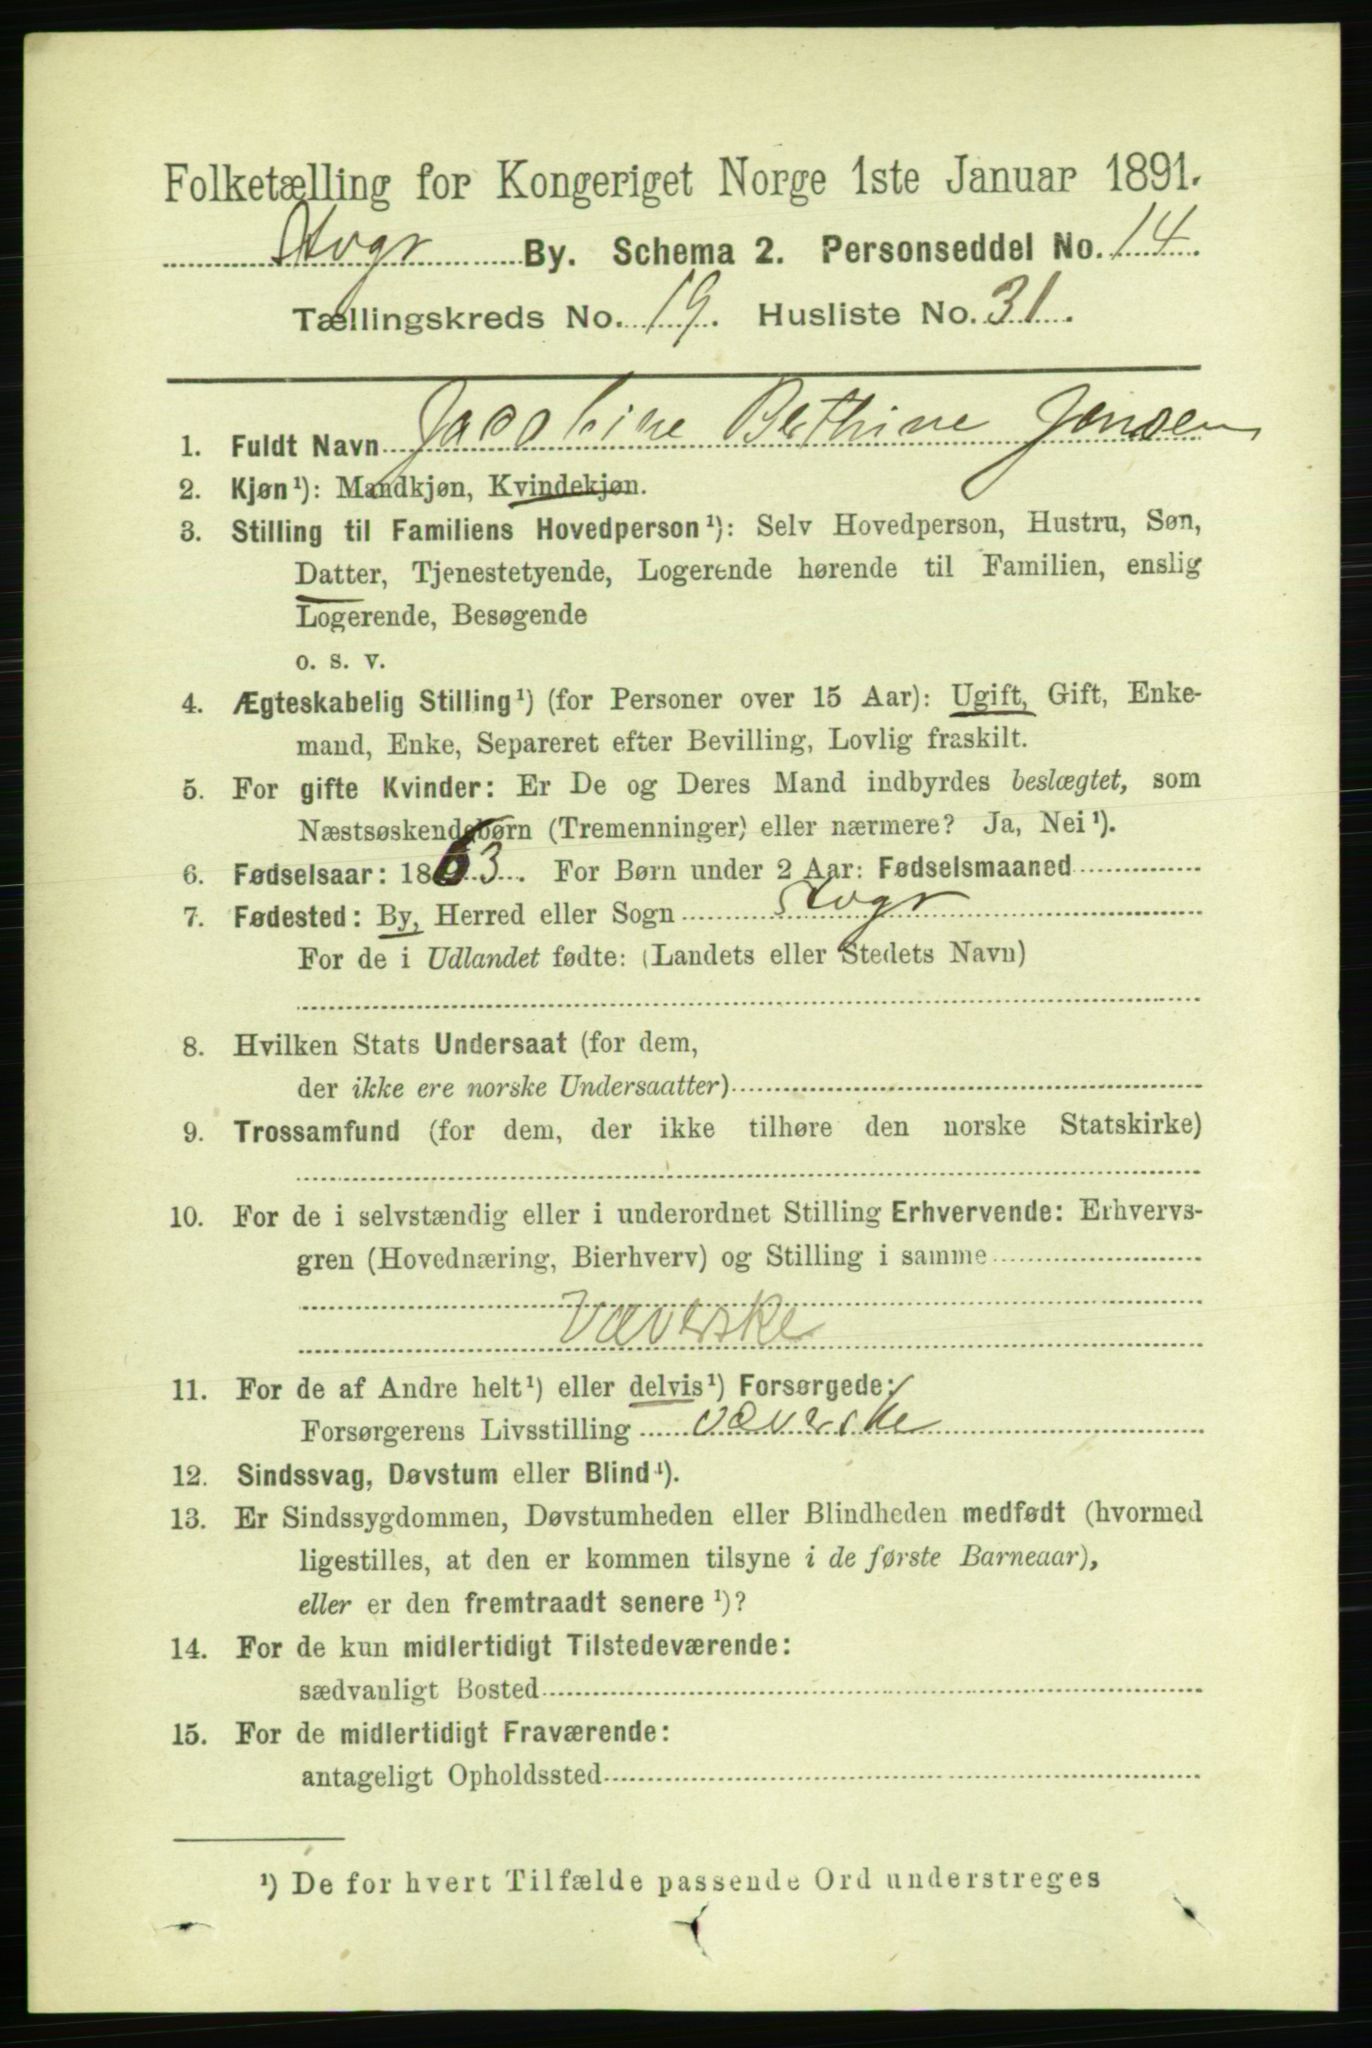 Folketælling for Kongeriget Norge 1ste Januar 1891.
Stvgr By. Schema 2. Personseddel No. 14
Tællingskreds No. 19. Husliste No. 31.
1. Fuldt Navn Jacobine Berthine Jensen
2. Kjøn¹): Mandkjøn, Kvindekjøn.
3. Stilling til Familiens Hovedperson¹): Selv Hovedperson, Hustru, Søn,
Datter, Tjenestetyende, Logerende hørende til Familien, enslig
Logerende, Besøgende
o. s. v.
4. Ægteskabelig Stilling¹) (for Personer over 15 Aar): Ugift, Gift, Enke-
mand, Enke, Separeret efter Bevilling, Lovlig fraskilt.
5. For gifte Kvinder: Er De og Deres Mand indbyrdes beslægtet, som
Næstsøskendebørn (Tremenninger) eller nærmere? Ja, Nei¹).
6. Fødselsaar: 1863. For Børn under 2 Aar: Fødselsmaaned
7. Fødested: By, Herred eller Sogn Stvgr
For de i Udlandet fødte: (Landets eller Stedets Navn)
8. Hvilken Stats Undersaat (for dem,
der ikke ere norske Undersaatter)
9. Trossamfund (for dem, der ikke tilhøre den norske Statskirke)
10. For de i selvstændig eller i underordnet Stilling Erhvervende: Erhvervs-
gren (Hovednæring, Bierhverv) og Stilling i samme
Væverske
11. For de af Andre helt¹) eller delvis¹) Forsørgede:
Forsørgerens Livsstilling væverske
12. Sindssvag, Døvstum eller Blind¹).
13. Er Sindssygdommen, Døvstumheden eller Blindheden medfødt (hvormed
ligestilles, at den er kommen tilsyne i de første Barneaar),
eller er den fremtraadt senere¹)?
14. For de kun midlertidigt Tilstedeværende:
sædvanligt Bosted
15. For de midlertidigt Fraværende:
antageligt Opholdssted
¹) De for hvert Tilfælde passende Ord understreges